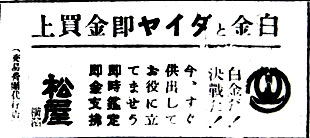 白金とダイヤ即金買上
白金だ！
決戦だ！！
今、すぐ
供出して
お役に立
てませう
即時鑑定
即金支拂
松屋
横浜
交易營團代行店